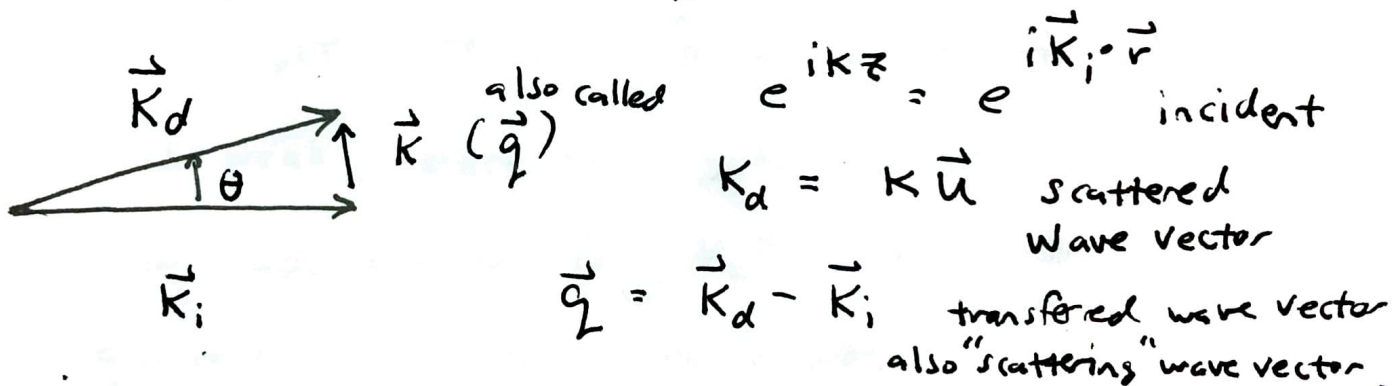 K⃗d
θ
K⃗i
also called
K⃗ (q⃗)
e^{ikz} = e^{iK⃗i·r⃗} incident
Kd = K u⃗ scattered
wave vector
q⃗ = K⃗d - K⃗i transfered wave vector
also "scattering" wave vector